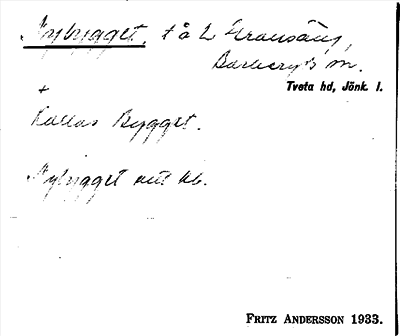 Nybygget, t å L Gransäng,
Barkeryds sn.
Tveta hd, Jönk. l.
+
Kallas Bygget.
Nybygget enl kb.
FRITZ ANDERSSON 1933.